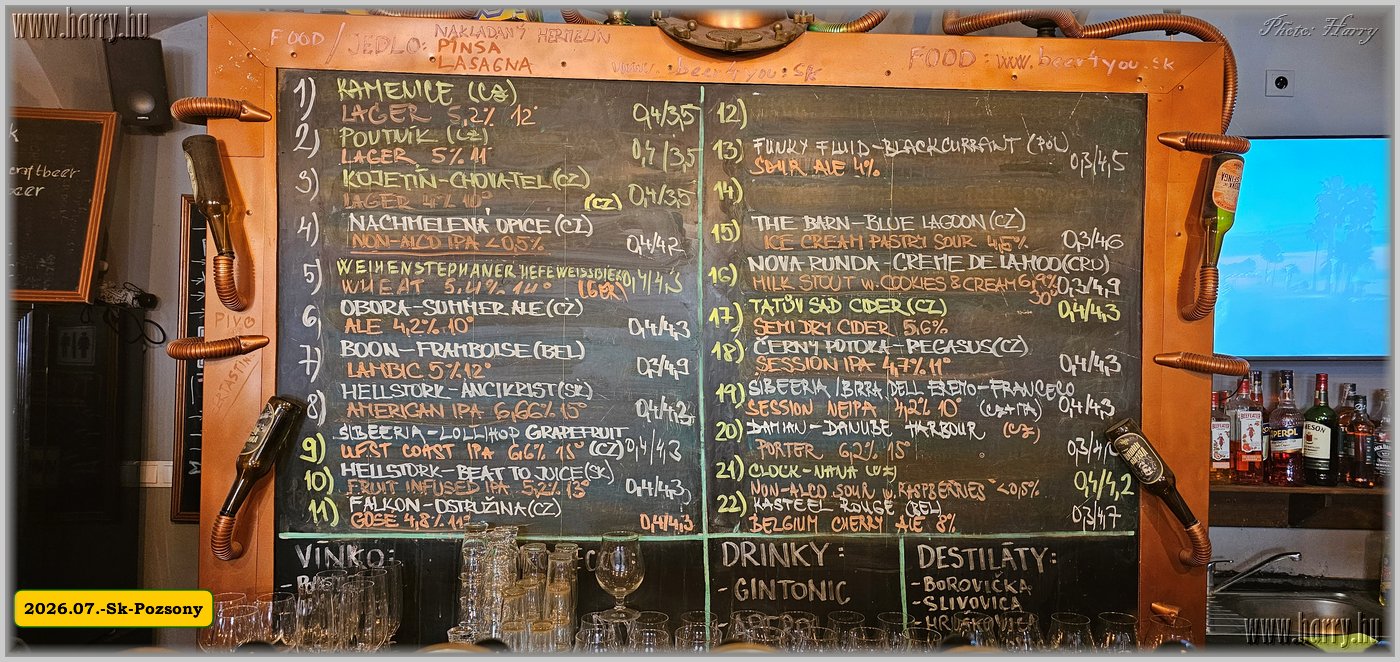 www.horry.hu
Photo: Harry
FOOD / JEDLO: NAKLADANÝ HERMELÍN
PINSA
LASAGNA
www.beer4you.sk
FOOD: www.beer4you.sk
craftbeer
beer
PIVO
1) KAMENICE (CZ)
LAGER 5,2% 12° 0,4/3,5
2) POUTNÍK (CZ)
LAGER 5% 11° 0,4/3,5
3) KOJETÍN-CHOVATEL (CZ)
LAGER 4% 10° 0,4/3,5
4) NACHMELENÁ OPICE (CZ) (CZ)
NON-ALCO IPA <0,5% 0,4/4,2
5) WEIHENSTEPHANER HEFEWEISSBIER 0,4/4,3
WHEAT 5,4% 14° (GER)
6) OBORA-SUMMER ALE (CZ)
ALE 4,2% 10° 0,4/4,3
7) BOON-FRAMBOISE (BEL)
LAMBIC 5% 12° 0,3/4,9
8) HELLSTORK-ANCIKRIST (SK)
AMERICAN IPA 6,66% 15° 0,4/4,2
9) SIBEERIA-LOLLIHOP GRAPEFRUIT 0,4/4,3
WEST COAST IPA 6,6% 15° (CZ)
10) HELLSTORK-BEAT TO JUICE (SK)
FRUIT INFUSED IPA 5,2% 13° 0,4/4,3
11) FALKON-OSTRUŽINA (CZ)
GOSE 4,8% 11° 0,4/4,3
12)
13) FUNKY FLUID-BLACKCURRANT (POL)
SOUR ALE 4% 0,3/4,5
14)
15) THE BARN-BLUE LAGOON (CZ)
ICE CREAM PASTRY SOUR 4,5% 0,3/4,6
16) NOVA RUNDA-CREME DE LA HOO (CRO)
MILK STOUT W. COOKIES & CREAM 6,9% 30° 0,3/4,9
17) TATŮV SAD CIDER (CZ) 0,4/4,3
SEMI DRY CIDER 5,6%
18) ČERNÝ POTOKA-PEGASUS (CZ)
SESSION IPA 4,7% 11° 0,4/4,3
19) SIBEERIA/BIRRA DELL EREMO-FRANCESCO
SESSION NEIPA 4,2% 10° (CZ+ITA) 0,4/4,3
20) DAMIAN-DANUBE HARBOUR (CZ)
PORTER 6,2% 15°
21) CLOCK-NANA (CZ)
NON-ALCO SOUR W. RASPBERRIES <0,5% 0,4/4,2
22) KASTEEL ROUGE (BEL)
BELGIUM CHERRY ALE 8% 0,3/4,7
VÍNKO:
DRINKY:
- GINTONIC
- APEROL
DESTILÁTY:
- BOROVIČKA
- SLIVOVICA
- HRUŠKOVICA
BEEFEATER
APEROL
JAMESON
2026.07.-Sk-Pozsony
www.horry.hu